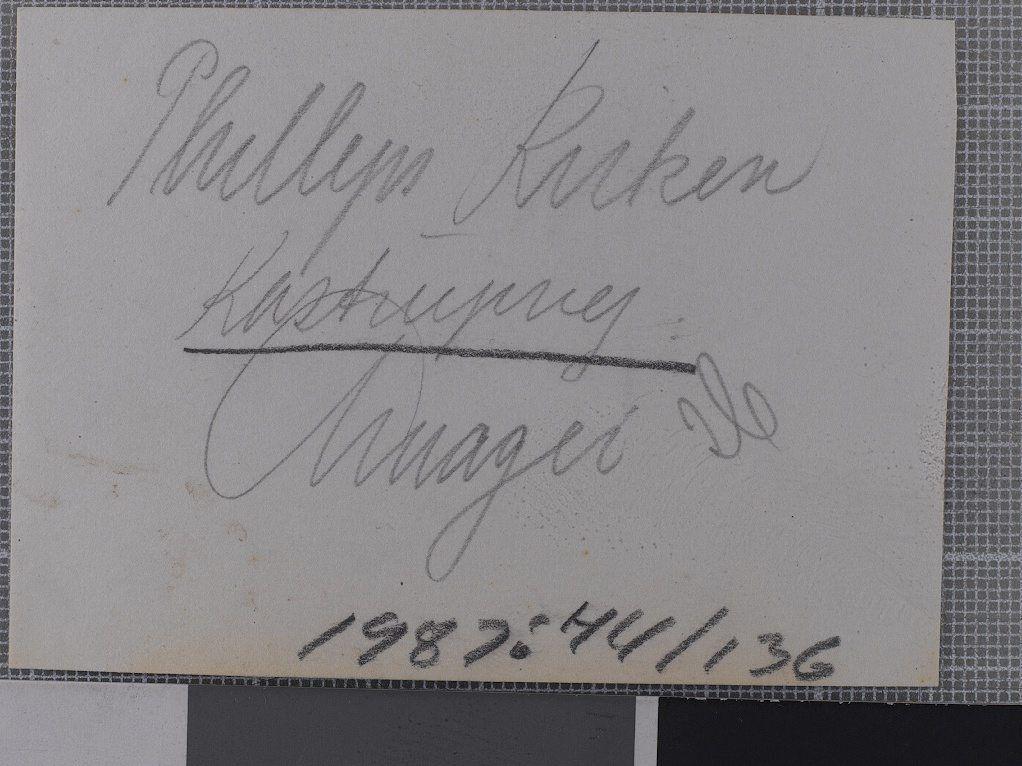 Phillips Kirken
Kastrupvej
Amager
1987:44/136